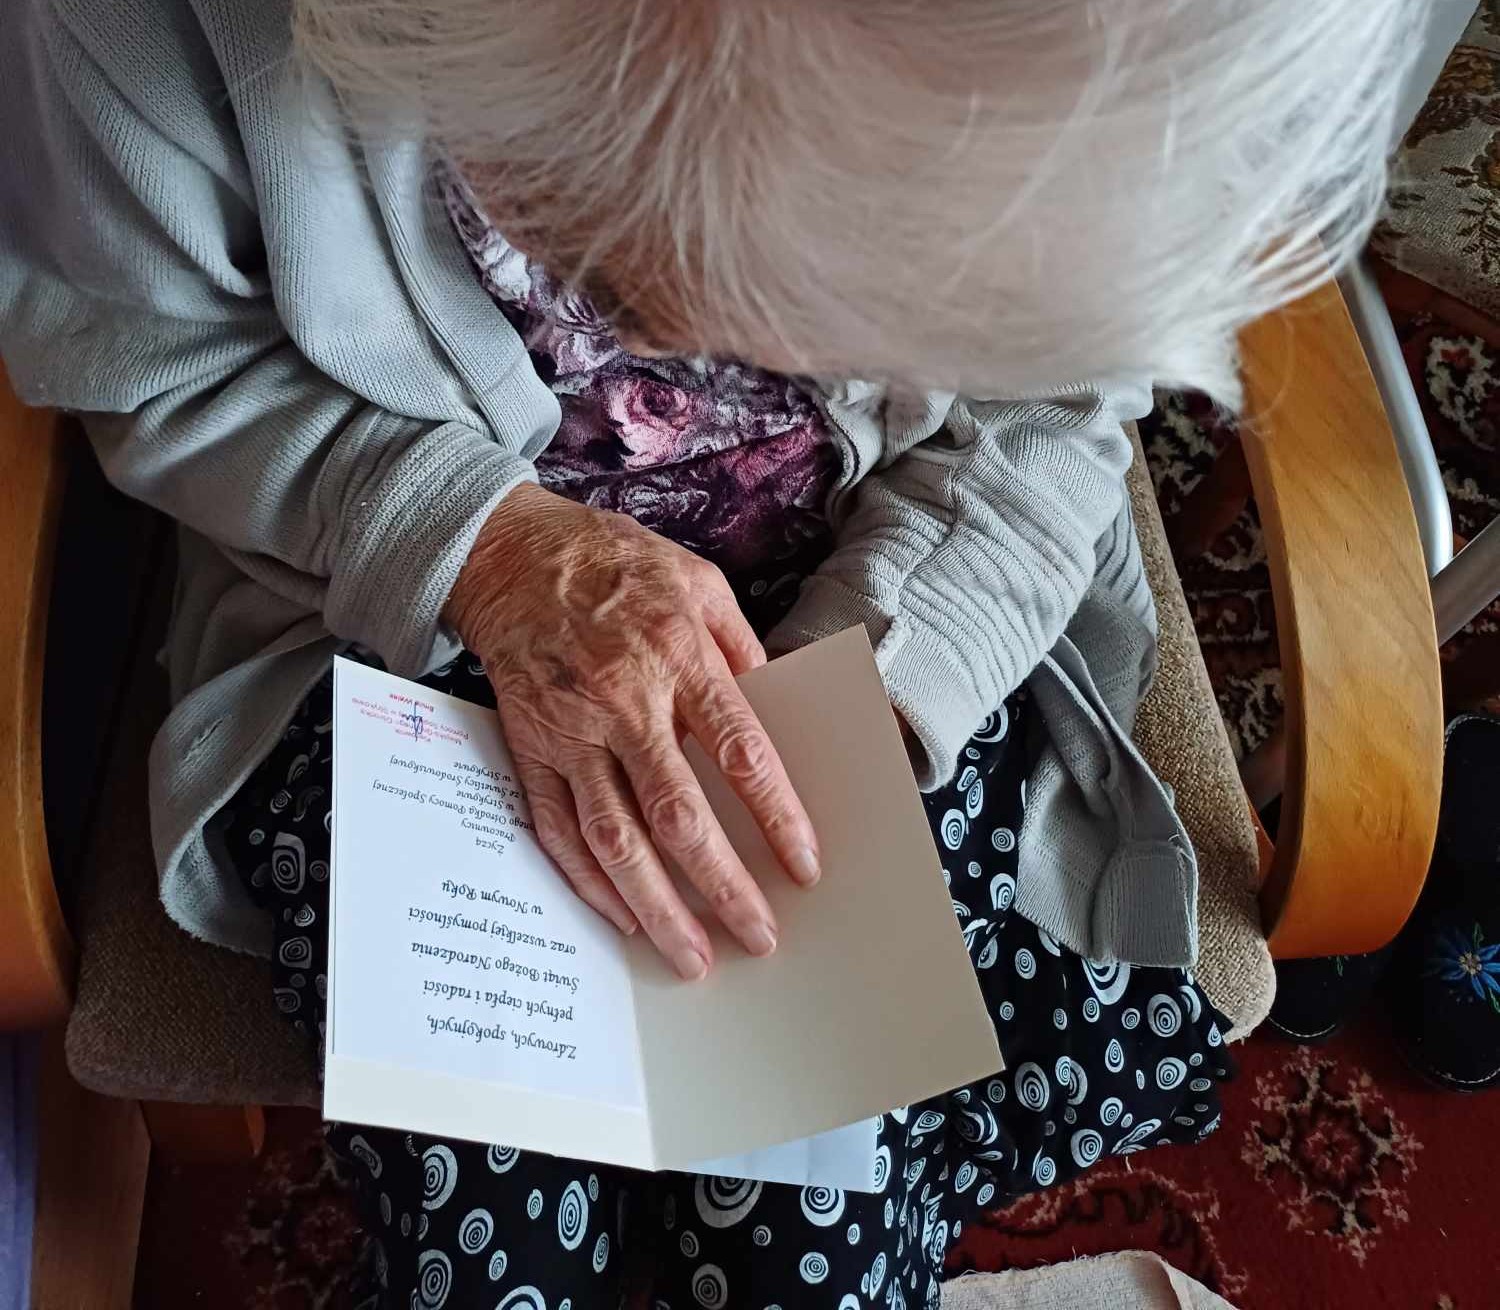 Zdrowych, spokojnych,
pełnych ciepła i radości
Świąt Bożego Narodzenia
oraz wszelkiej pomyślności
w Nowym Roku
Życzą
Pracownicy
Ośrodka Pomocy Społecznej
w Strykowie
ze Świetlicy Środowiskowej
w Strykowie
Kierownik
Ośrodka
Pomocy w Strykowie